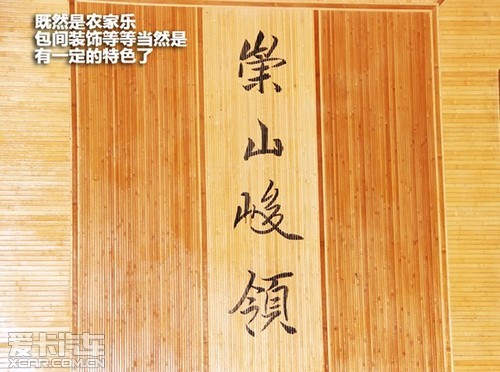 既然是农家乐
包间装饰等等当然是
有一定的特色了
崇山峻領
爱卡汽车
XCAR.COM.CN